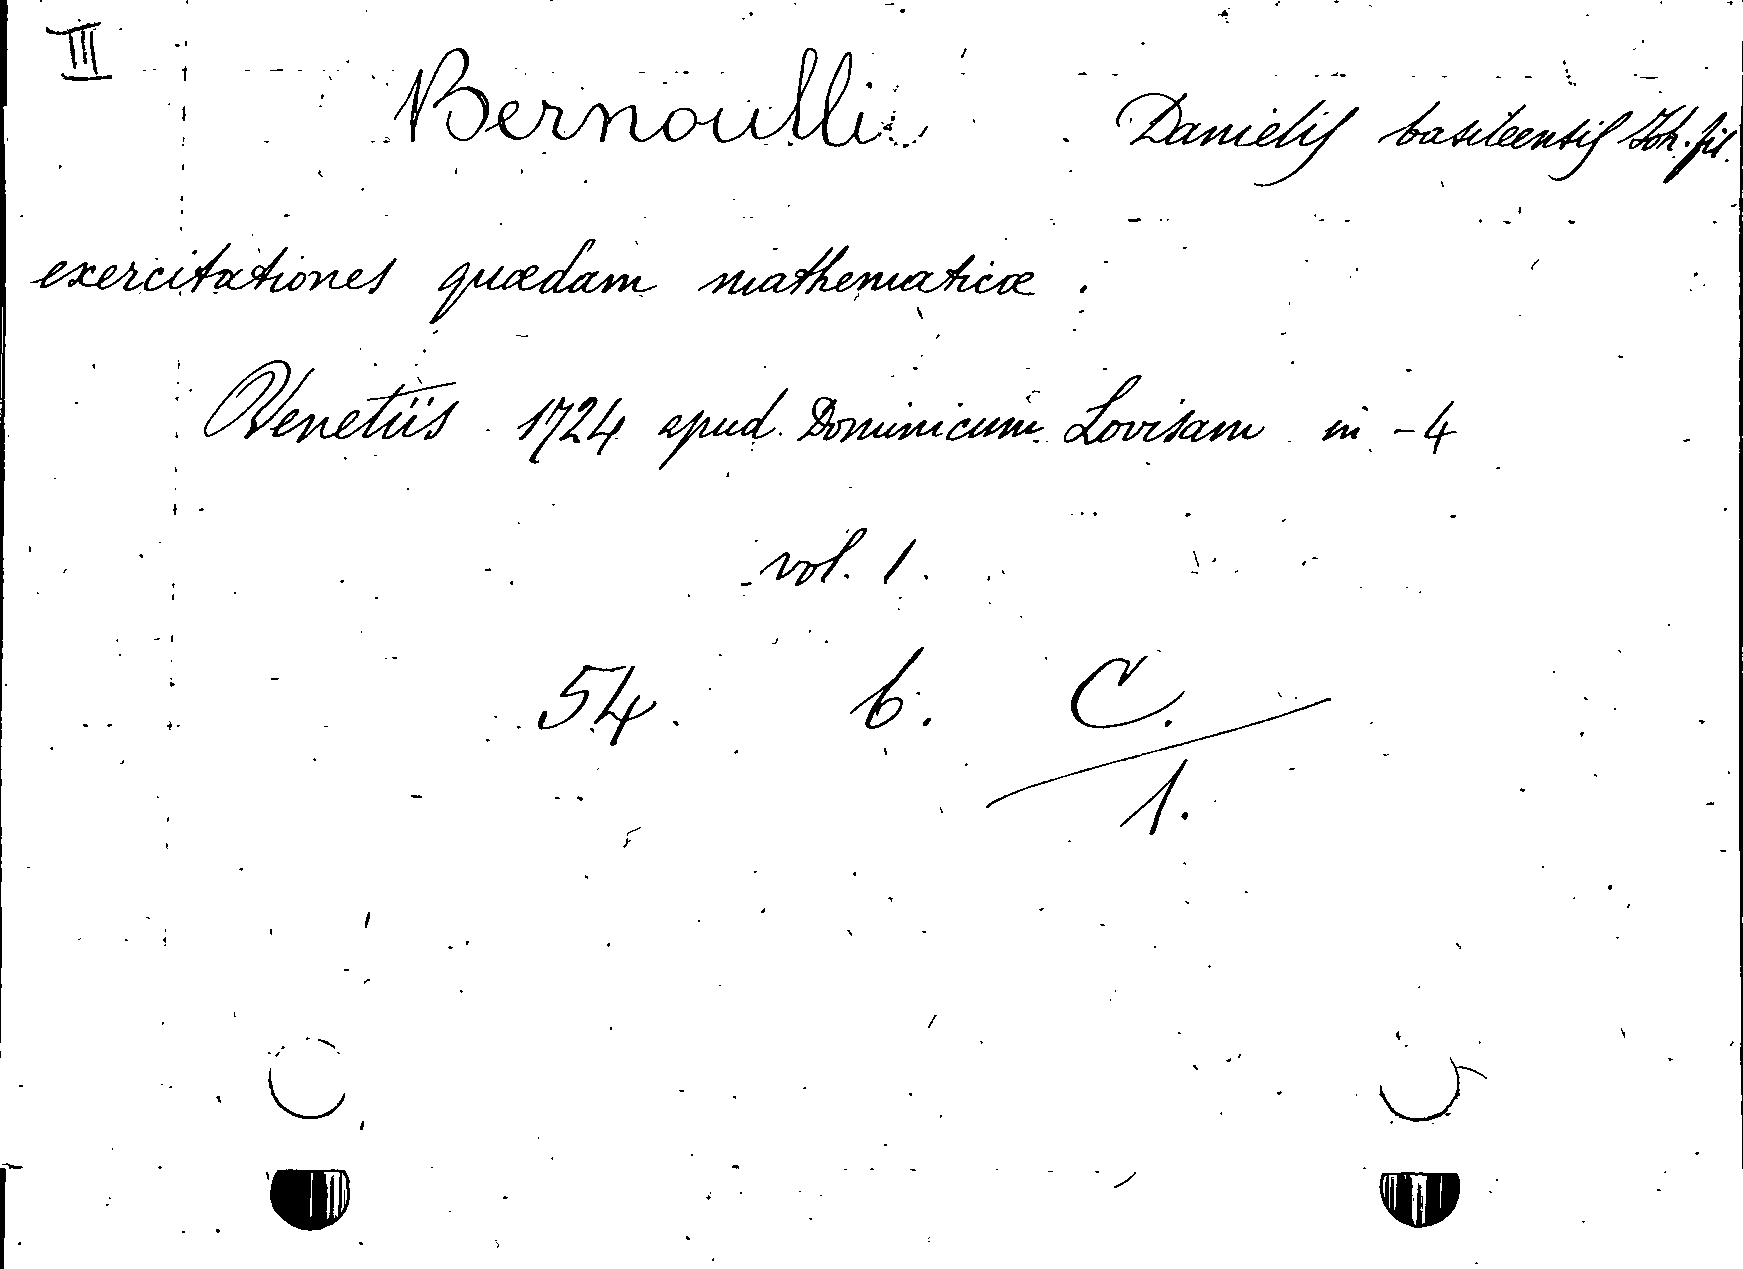 III
Bernoulli Danielis basileensis Joh. fil.
exercitationes quædam mathematicæ.
Venetiis 1724 apud Dominicum Lovisam in-4
vol. 1.
54. b. C.
1.